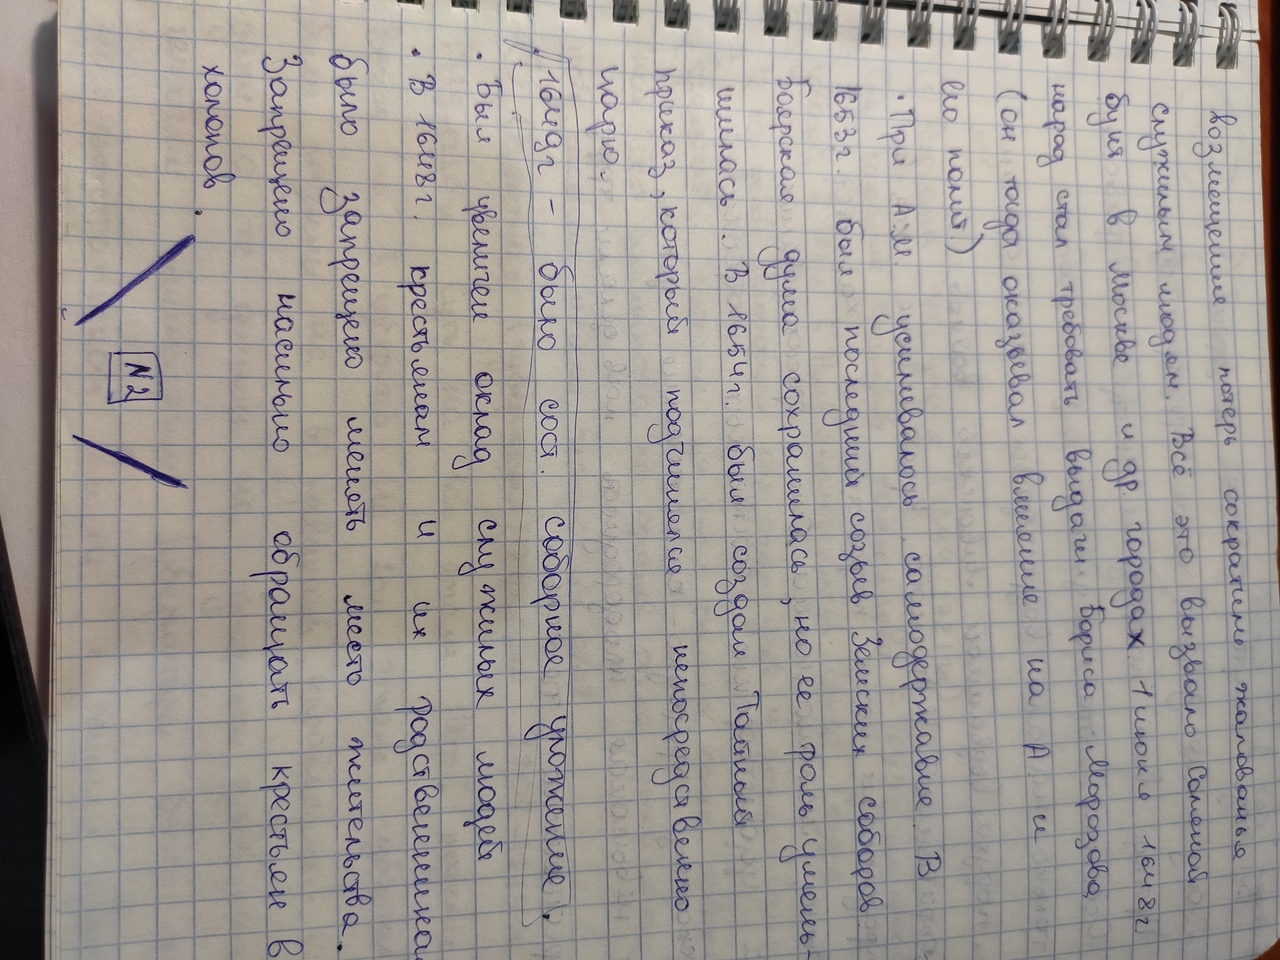 возмещение потерь сократили жалованья
служилым людям. Всё это вызвало Соленой
бунт в Москве и др. городах. 1 июня 1648г
народ стал требовать выдачи Бориса Морозова
(он тогда оказывал влияние на А и
его полит)
· При А.М. усиливалось самодержавие. В
1653г. был последний созыв Земских соборов.
Боярская дума сохранилась, но ее роль умень-
шилась. В 1654г. был создан Тайный
приказ, который подчинялся непосредственно
царю.
1649г – было сост. соборное уложение.
· Был увеличен оклад служилых людей
· В 1648г. крестьянам и их родственника
было запрещено менять место жительства.
Запрещено насильно обращать крестьян в
холопов.
N2